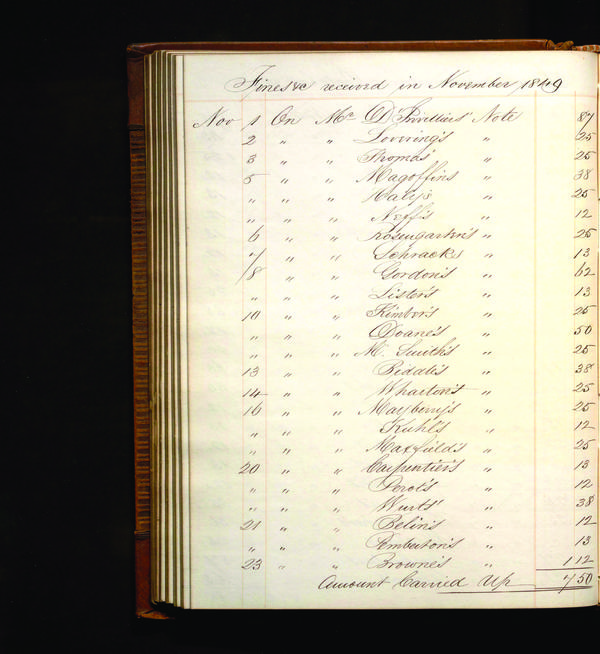 Fines &c received in November 1849
Nov 1 On Mr D'Invilliers' Note 87
2 " " Lovering's " 25
3 " " Thomas' " 25
5 " " Magoffins " 38
" " " Haly's " 25
" " " Neff's " 12
6 " " Rosengarten's " 25
7 " " Schrack's " 13
8 " " Gordon's " 62
" " " Lister's " 13
10 " " Kimber's " 25
" " " Doane's " 50
" " " M. Smith's " 25
13 " " Biddle's " 38
14 " " Wharton's " 25
16 " " Mayberry's " 25
" " " Kuhl's " 12
" " " Maxfield's " 25
20 " " Carpentier's " 13
" " " Perot's " 12
" " " Wurts' " 38
21 " " Belin's " 12
" " " Pemberton's " 13
23 " " Browne's " 1 12
Amount Carried Up 7 50